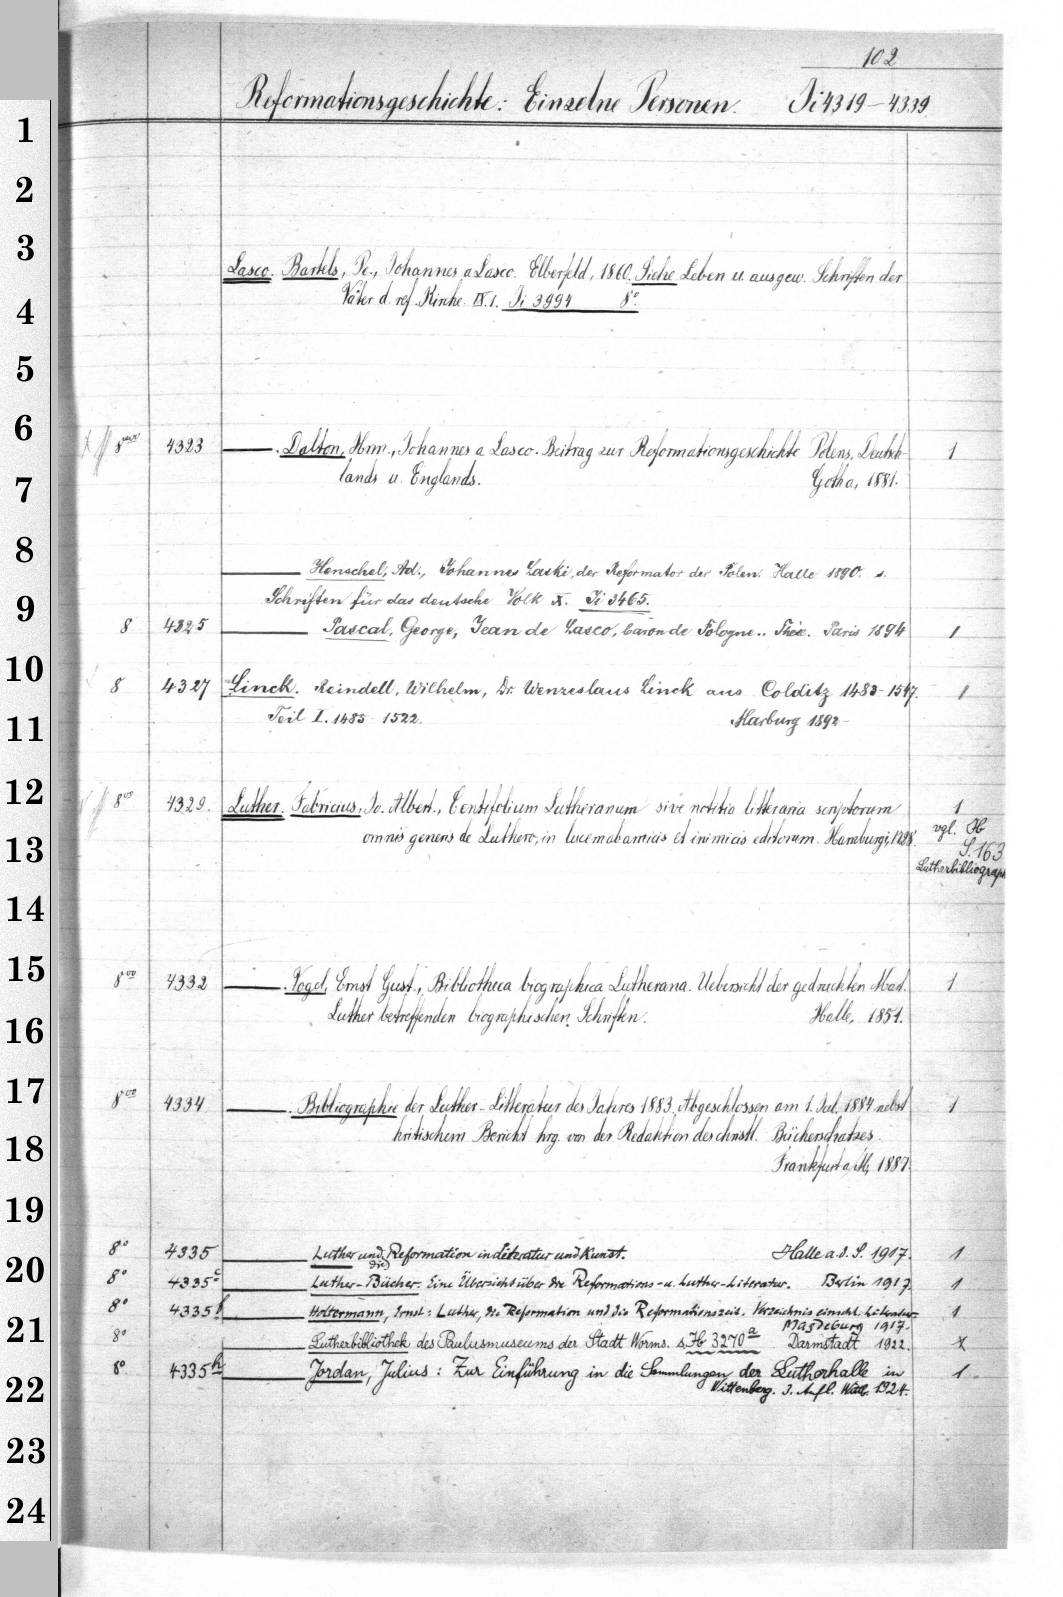 102
Reformationsgeschichte: Einzelne Personen. Ji 4319-4339
1
2
3
Lasco. Bartels, Pe., Johannes a Lasco. Elberfeld, 1860. Siehe Leben u. ausgew. Schriften der
Väter d. ref. Kirche. IX. 1. Ji 3994 8°
4
5
6
4323 . Dalton, Hrm., Johannes a Lasco. Beitrag zur Reformationsgeschichte Polens, Deutsch- 1
7
lands u. Englands. Gotha, 1881.
8
Henschel, Ad., Johannes Laski, der Reformator der Polen. Halle 1890. s.
9
Schriften für das deutsche Volk X. Ji 3465.
8 4325 Pascal, George, Jean de Lasco, baron de Pologne.. Thèse. Paris 1894 1
10
8 4327 Linck. Reindell, Wilhelm, Dr. Wenzeslaus Linck aus Colditz 1483-1547. 1
11
Teil I. 1483-1522. Marburg 1892-
12
8vo 4329. Luther. Fabricius, Jo. Albert., Centifolium Lutheranum sive notitia litteraria scriptorum 1
omnis generis de Luthero, in lucem ab amicis et inimicis editorum. Hamburgi, 1728.
vgl. Hb
S. 163
Lutherbibliograph
13
14
15
8vo 4332 . Vogel, Ernst Gust., Bibliotheca biographica Lutherana. Uebersicht der gedruckten Mart. 1
16
Luther betreffenden biographischen Schriften. Halle, 1851.
17
8vo 4334 . Bibliographie der Luther-Litteratur des Jahres 1883. Abgeschlossen am 1. Jul. 1884 nebst 1
18
kritischem Bericht hrg. von der Redaktion des christl. Bücherschatzes.
Frankfurt a/M, 1887.
19
8° 4335 Luther und die Reformation in Literatur und Kunst. Halle a. d. S. 1917. 1
20
8° 4335c Luther-Bücher. Eine Übersicht über die Reformations- u. Luther-Literatur. Berlin 1917 1
8° 4335f Holtermann, Ernst: Luther, die Reformation und die Reformationszeit. Verzeichnis einschl. Literatur. 1
Magdeburg 1917.
21
8° Lutherbibliothek des Paulusmuseums der Stadt Worms. s. Hb 3270a Darmstadt 1922. x
8° 4335h Jordan, Julius: Zur Einführung in die Sammlungen der Lutherhalle in 1
22
Wittenberg. 3. Aufl. Witt. 1924.
23
24